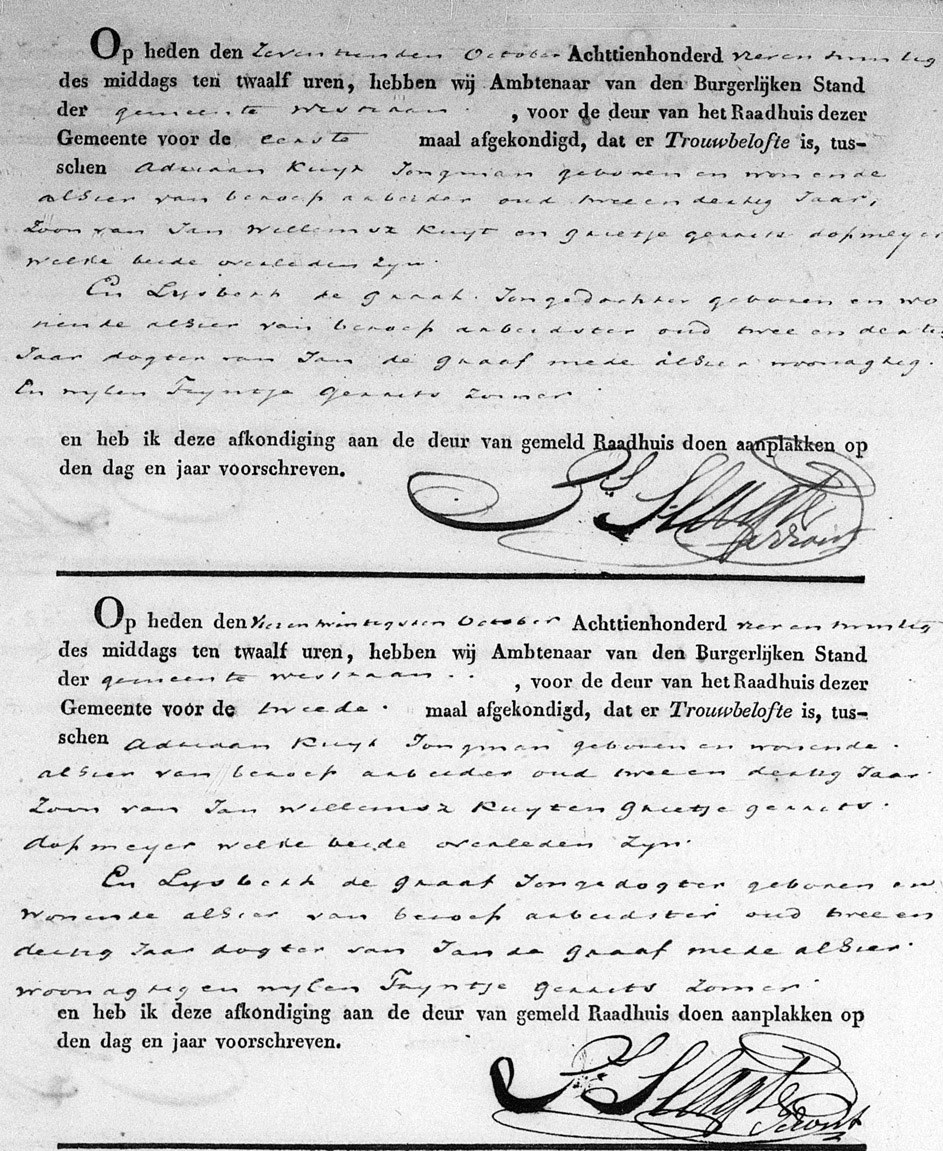 Op heden den Zeventienden October Achttienhonderd vier en twintig
des middags ten twaalf uren, hebben wij Ambtenaar van den Burgerlijken Stand
der gemeente Westzaan , voor de deur van het Raadhuis dezer
Gemeente voor de eerste maal afgekondigd, dat er Trouwbelofte is, tus-
schen Adriaan Kuyt Jongman geboren en wonende
alhier van beroep arbeider oud twee en dertig Jaar,
Zoon van Jan Willemsz Kuyt en Grietje Gerrits Dopmeyer
welke beide overleden Zyn.
En Lysbeth de Graaf. Jongedochter geboren en wo
nende alhier van beroep arbeidster oud twee en dertig
Jaar dogter van Jan de Graaf mede alhier woonagtig.
En wylen Tryntje Gerrits Zomer.
en heb ik deze afkondiging aan de deur van gemeld Raadhuis doen aanplakken op
den dag en jaar voorschreven.
Op heden den Vierentwintigsten October Achttienhonderd vier en twintig
des middags ten twaalf uren, hebben wij Ambtenaar van den Burgerlijken Stand
der gemeente Westzaan . . , voor de deur van het Raadhuis dezer
Gemeente voor de tweede. maal afgekondigd, dat er Trouwbelofte is, tus-
schen Adriaan Kuyt Jongman geboren en wonende.
alhier van beroep arbeider oud twee en dertig Jaar.
Zoon van Jan Willemsz Kuyt en Grietje Gerrits.
Dopmeyer welke beide overleden Zyn.
En Lysbeth de Graaf Jongedogter geboren en
wonende alhier van beroep arbeidster oud twee en
dertig Jaar dogter van Jan de Graaf mede alhier.
woonagtig en wylen Tryntje Gerrits Zomer.
en heb ik deze afkondiging aan de deur van gemeld Raadhuis doen aanplakken op
den dag en jaar voorschreven.